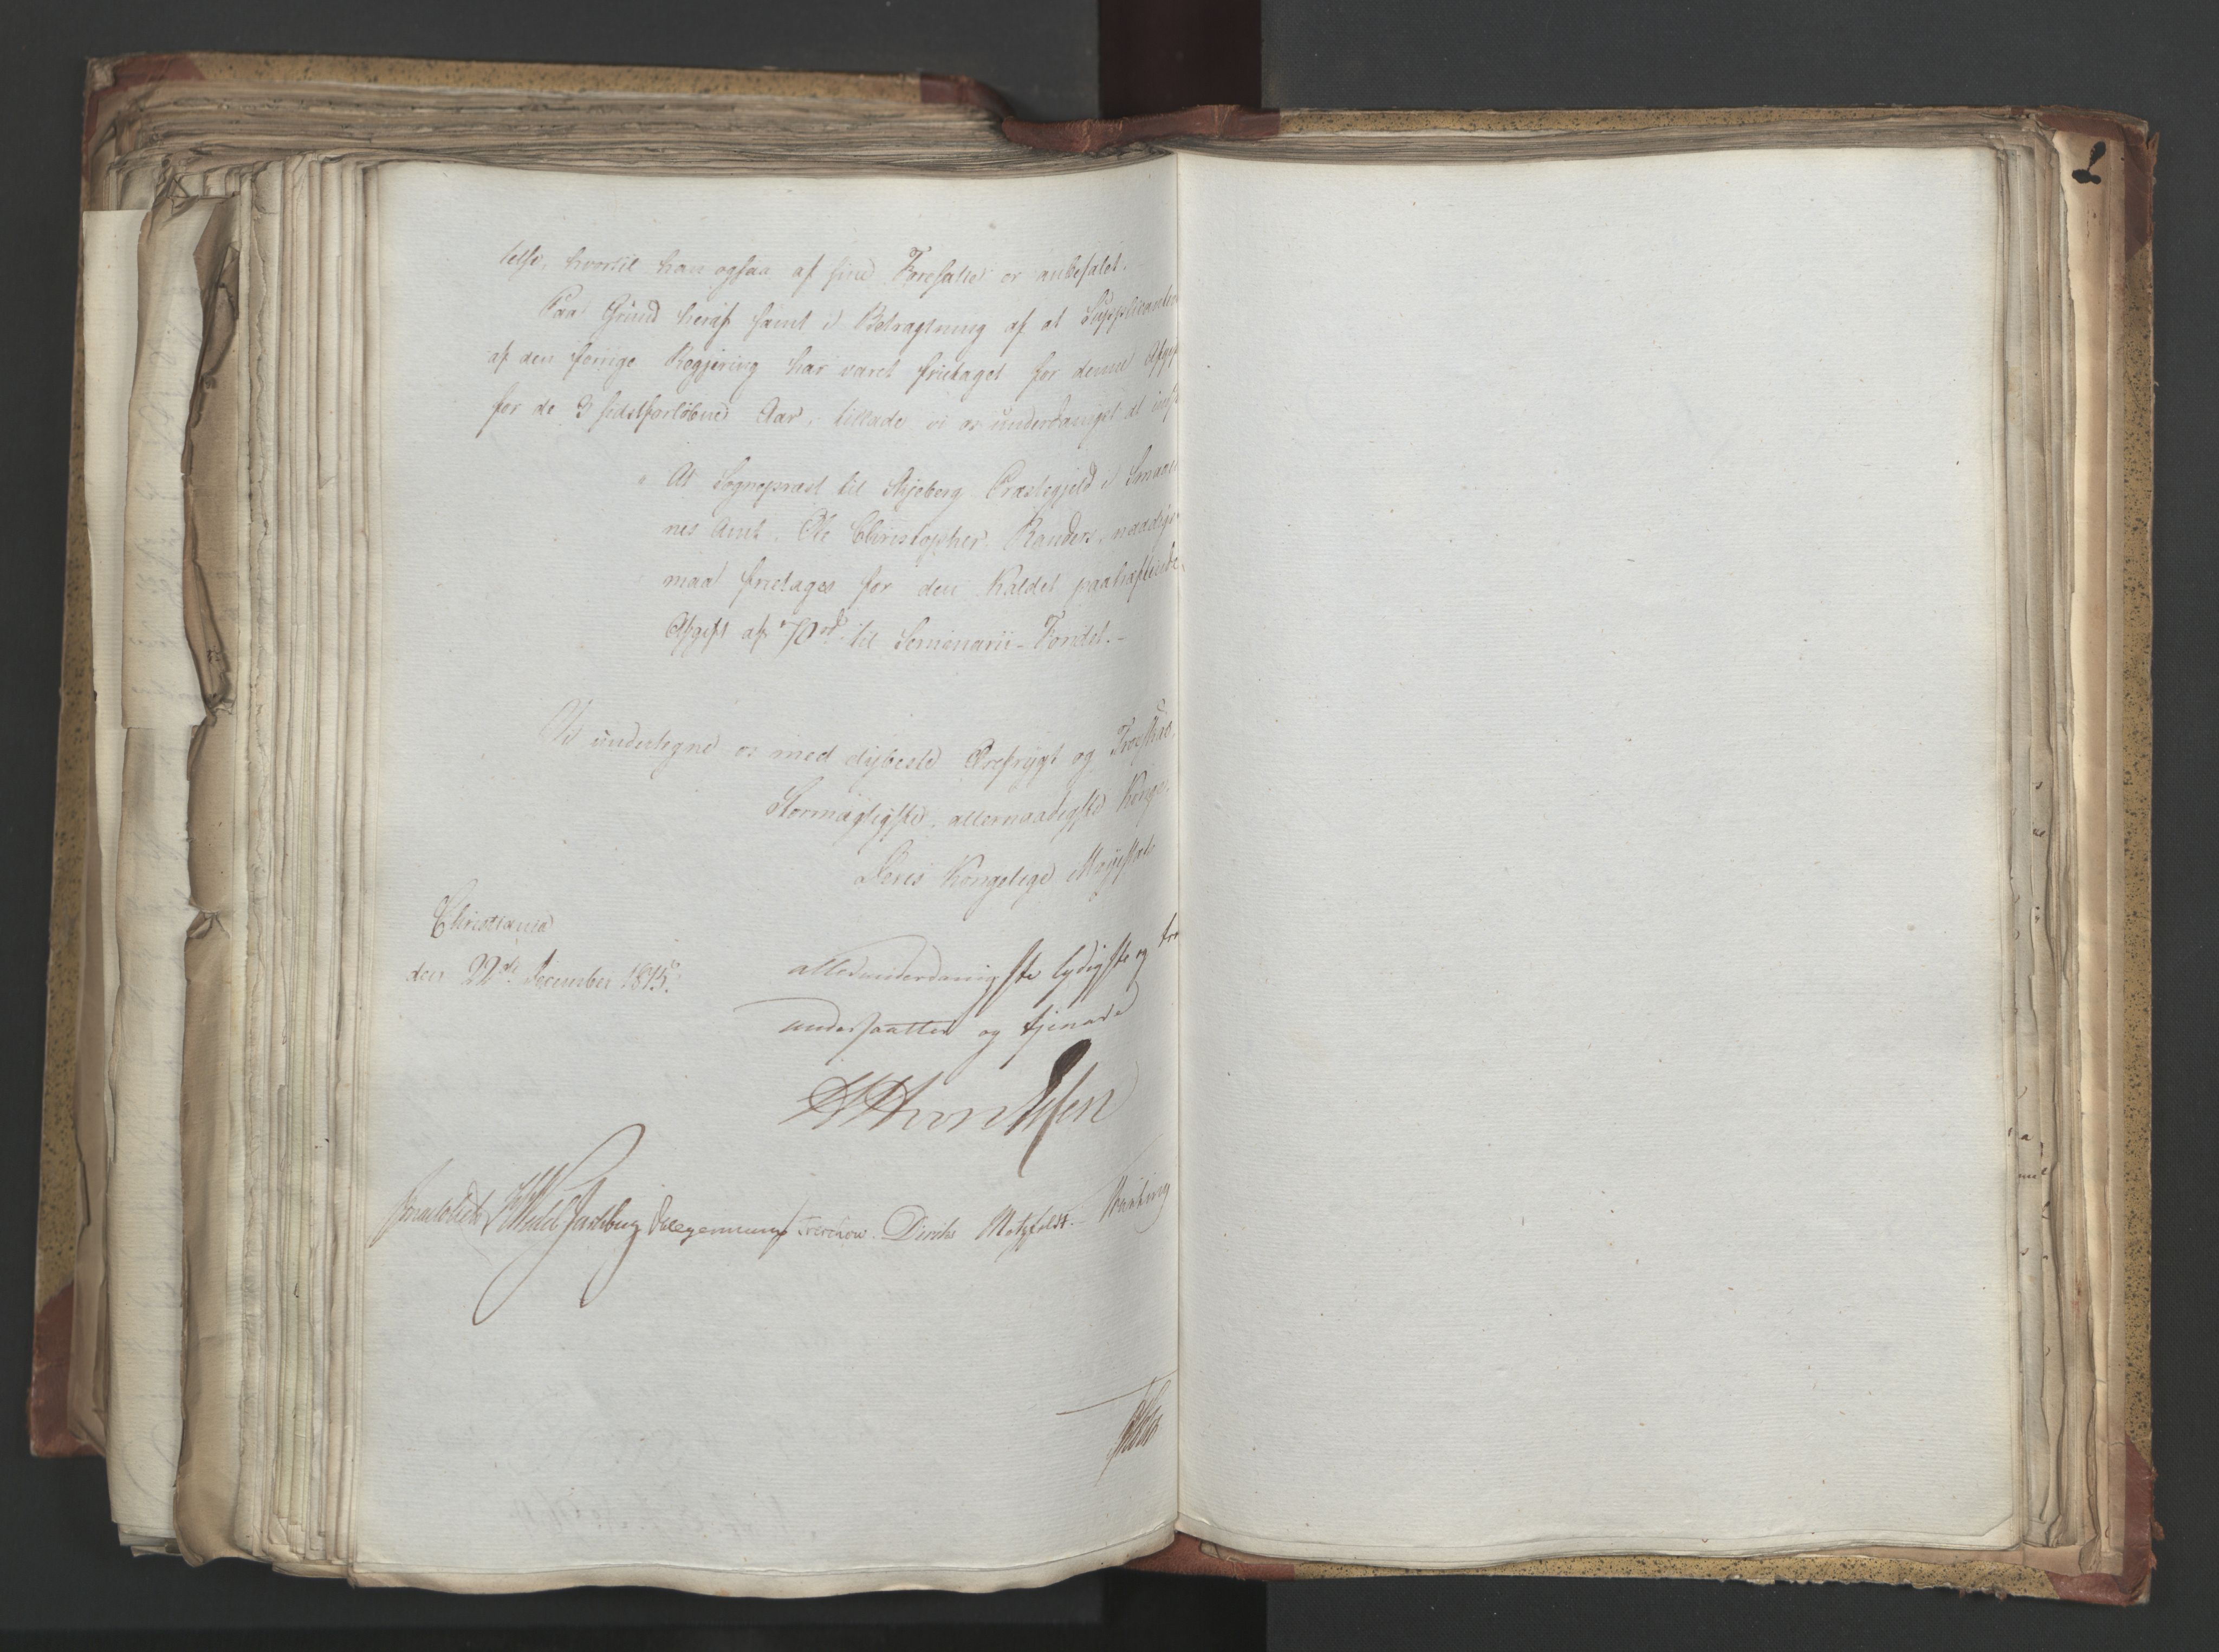 telse, hvortil han ogsaa af sine Foresatte er anbefalet.
Paa Grund heraf samt i Betragtning af at Supplicanten
af den forrige Regjering har været fritaget for denne Afgift
for de 3 sidstforløbne Aar, tillade vi os underdanigst at
At Sognepræst til Skjeberg Præstegjeld i Smaale
nes Amt, Ole Christopher Randers, naadigst
maa fritages for den Kaldet paahæftende
Afgift af 70 rd til Seminarii-Fondet.-
Vi undertegne os med dybeste Ærefrygt og Troskab,
Stormægtigste, allernaadigste Konge,
Deres Kongelige Majestæts
Christiania
den 22de December 1815.
allerunderdanigste lydigste og tro
undersaatter og tjenere
Sommerhielm Wedel Jarlsberg Treschow. Diriks Motzfeldt.